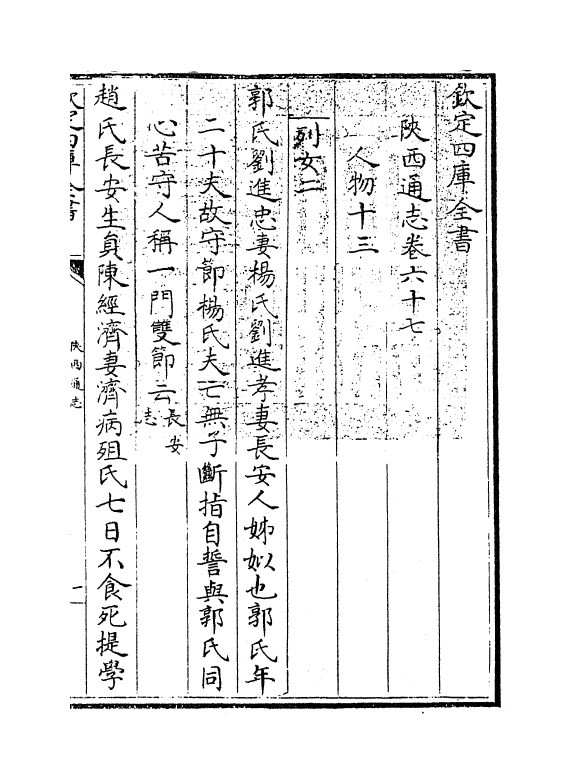 欽定四庫全書
陝西通志卷六十七
人物十三
列女二
郭氏劉進忠妻楊氏劉進孝妻長安人姊姒也郭氏年
二十夫故守節楊氏夫亡無子斷指自誓與郭氏同
心苦守人稱一門雙節云長安志
趙氏長安生員陳經濟妻濟病殂氏七日不食死提學
欽定四庫全書
陝西通志
一